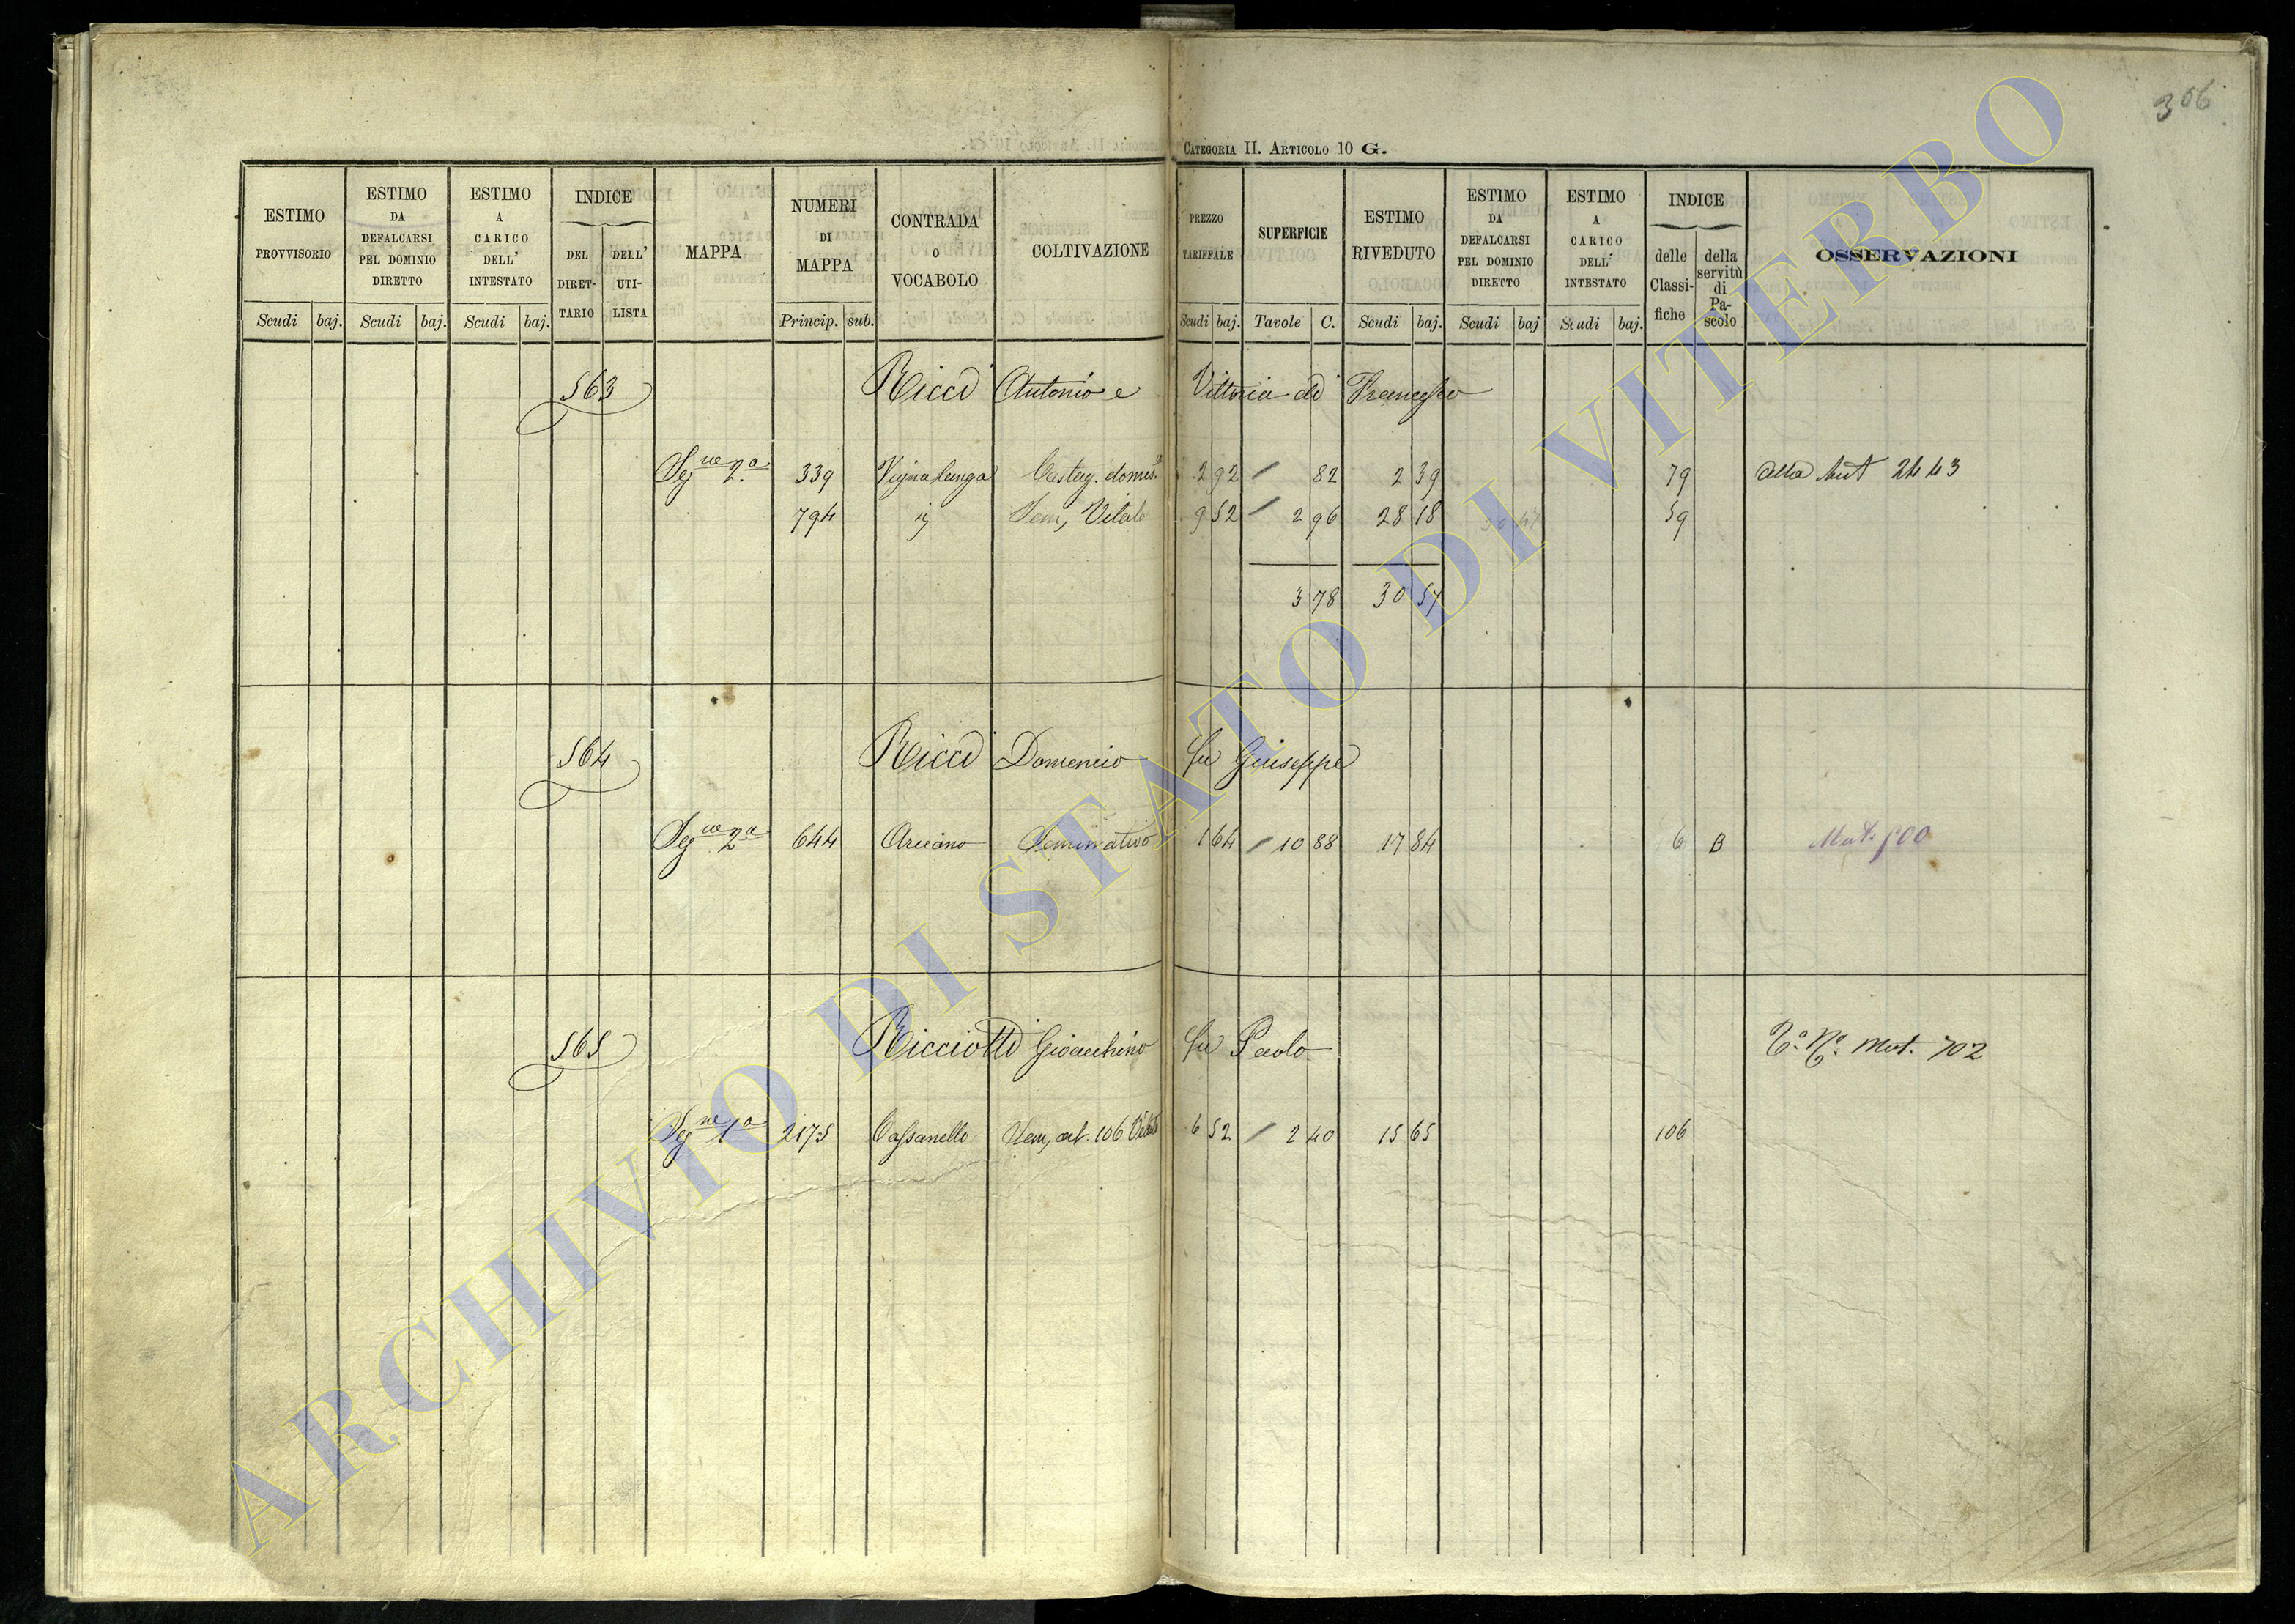 306
CATEGORIA II. ARTICOLO 10 G.
ESTIMO PROVVISORIO
ESTIMO DA DEFALCARSI PEL DOMINIO DIRETTO
ESTIMO A CARICO DELL' INTESTATO
INDICE
DEL DIRETTARIO
DELL' UTILISTA
MAPPA
NUMERI DI MAPPA
CONTRADA O VOCABOLO
COLTIVAZIONE
PREZZO TARIFFALE
SUPERFICIE
ESTIMO RIVEDUTO
ESTIMO DA DEFALCARSI PEL DOMINIO DIRETTO
ESTIMO A CARICO DELL' INTESTATO
INDICE
delle Classifiche
della servitù di Pascolo
OSSERVAZIONI
Scudi baj. Scudi baj. Scudi baj. Princip. sub. Scudi baj. Tavole C. Scudi baj. Scudi baj Scudi baj.
563 Ricci Antonio e Vittoria di Francesco
Segne 2a 339 Vignalunga Castag. domes. 2 92 / 82 2 39 79 alla Mut 2443
794 Sem, Vitato 9 52 / 2 96 28 18 59
3 78 30 57
564 Ricci Domenico fu Giuseppe
Segne 2a 644 Arciano Seminativo 1 64 / 10 88 17 84 6 B Mut. 500
565 Ricciotti Gioacchino fu Paolo Mut. 702
Segne 1a 2175 Cassanello Sem, art. 106 Vitato 6 52 / 2 40 15 65 106
ARCHIVIO DI STATO DI VITERBO